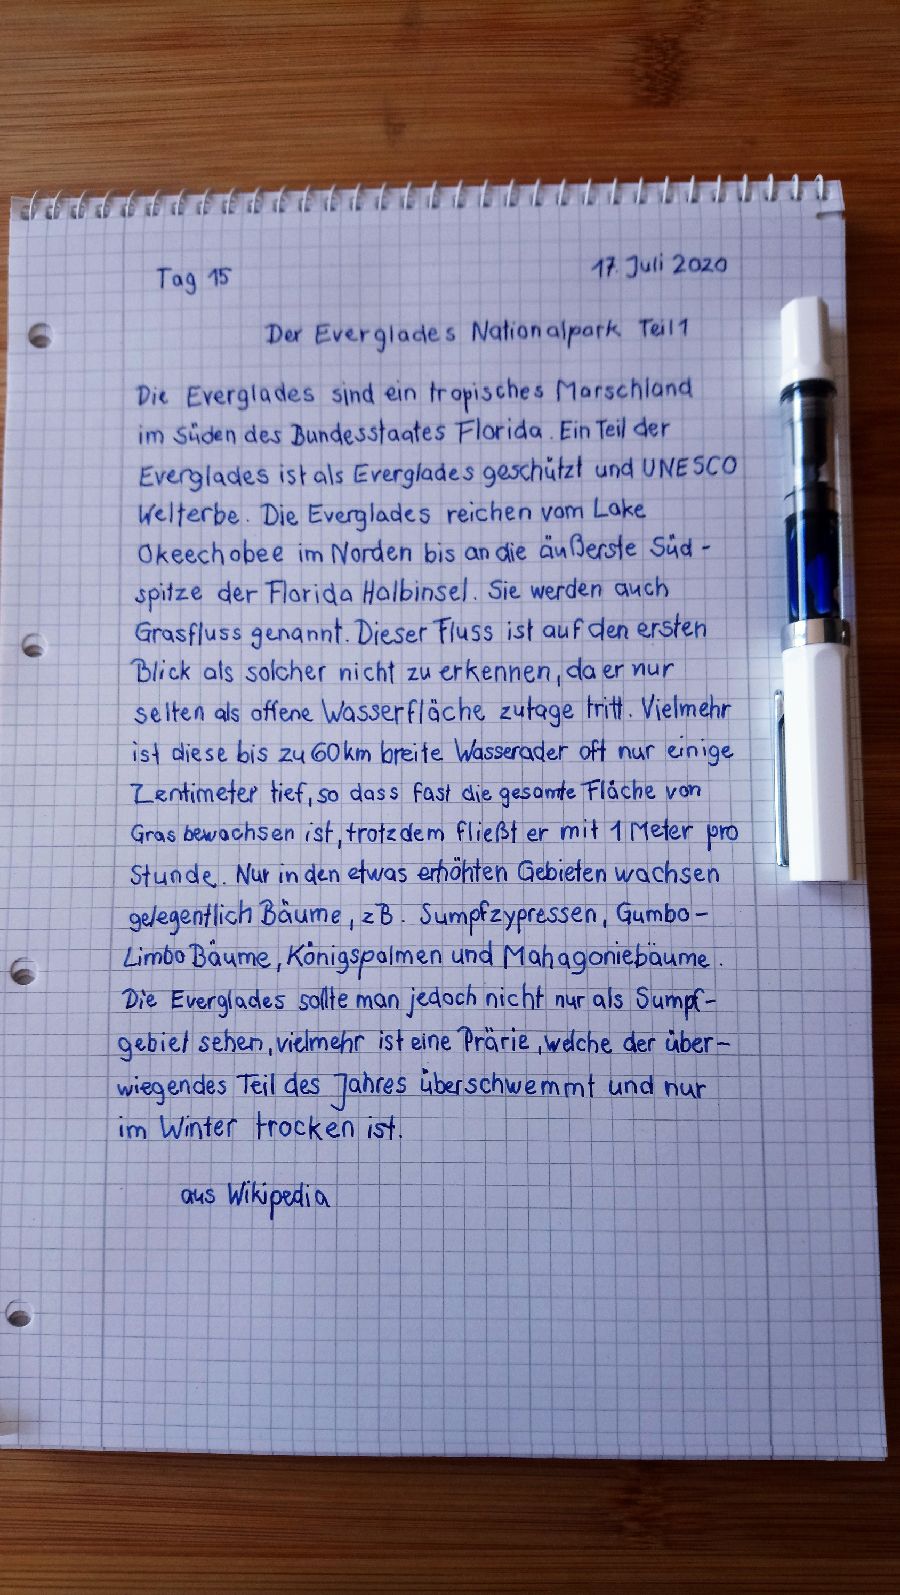 Tag 15
17. Juli 2020
Der Everglades Nationalpark Teil 1
Die Everglades sind ein tropisches Marschland
im Süden des Bundesstaates Florida. Ein Teil der
Everglades ist als Everglades geschützt und UNESCO
Welterbe. Die Everglades reichen vom Lake
Okeechobee im Norden bis an die äußerste Süd-
spitze der Florida Halbinsel. Sie werden auch
Grasfluss genannt. Dieser Fluss ist auf den ersten
Blick als solcher nicht zu erkennen, da er nur
selten als offene Wasserfläche zutage tritt. Vielmehr
ist diese bis zu 60 km breite Wasserader oft nur einige
Zentimeter tief, so dass fast die gesamte Fläche von
Gras bewachsen ist, trotzdem fließt er mit 1 Meter pro
Stunde. Nur in den etwas erhöhten Gebieten wachsen
gelegentlich Bäume, z B. Sumpfzypressen, Gumbo-
Limbo Bäume, Königspalmen und Mahagoniebäume.
Die Everglades sollte man jedoch nicht nur als Sumpf-
gebiet sehen, vielmehr ist eine Prärie, welche der über-
wiegendes Teil des Jahres überschwemmt und nur
im Winter trocken ist.
aus Wikipedia